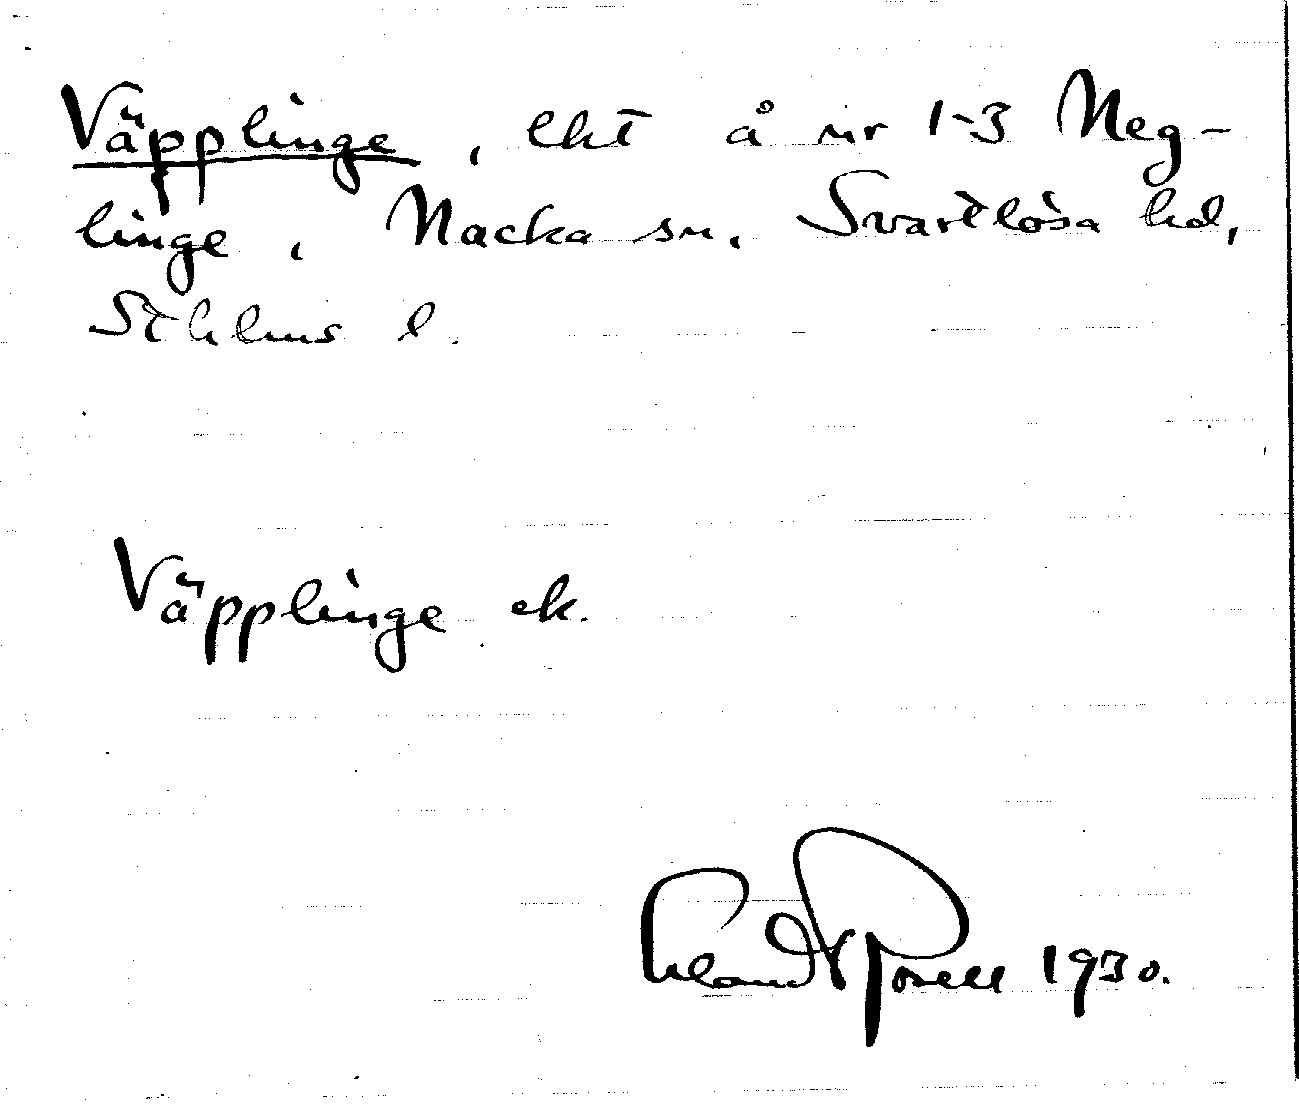 Väpplinge, lht å nr 1-3 Neg-
linge, Nacka sn. Svartlösa hd,
Sthlms l.
Väpplinge ek.
1930.